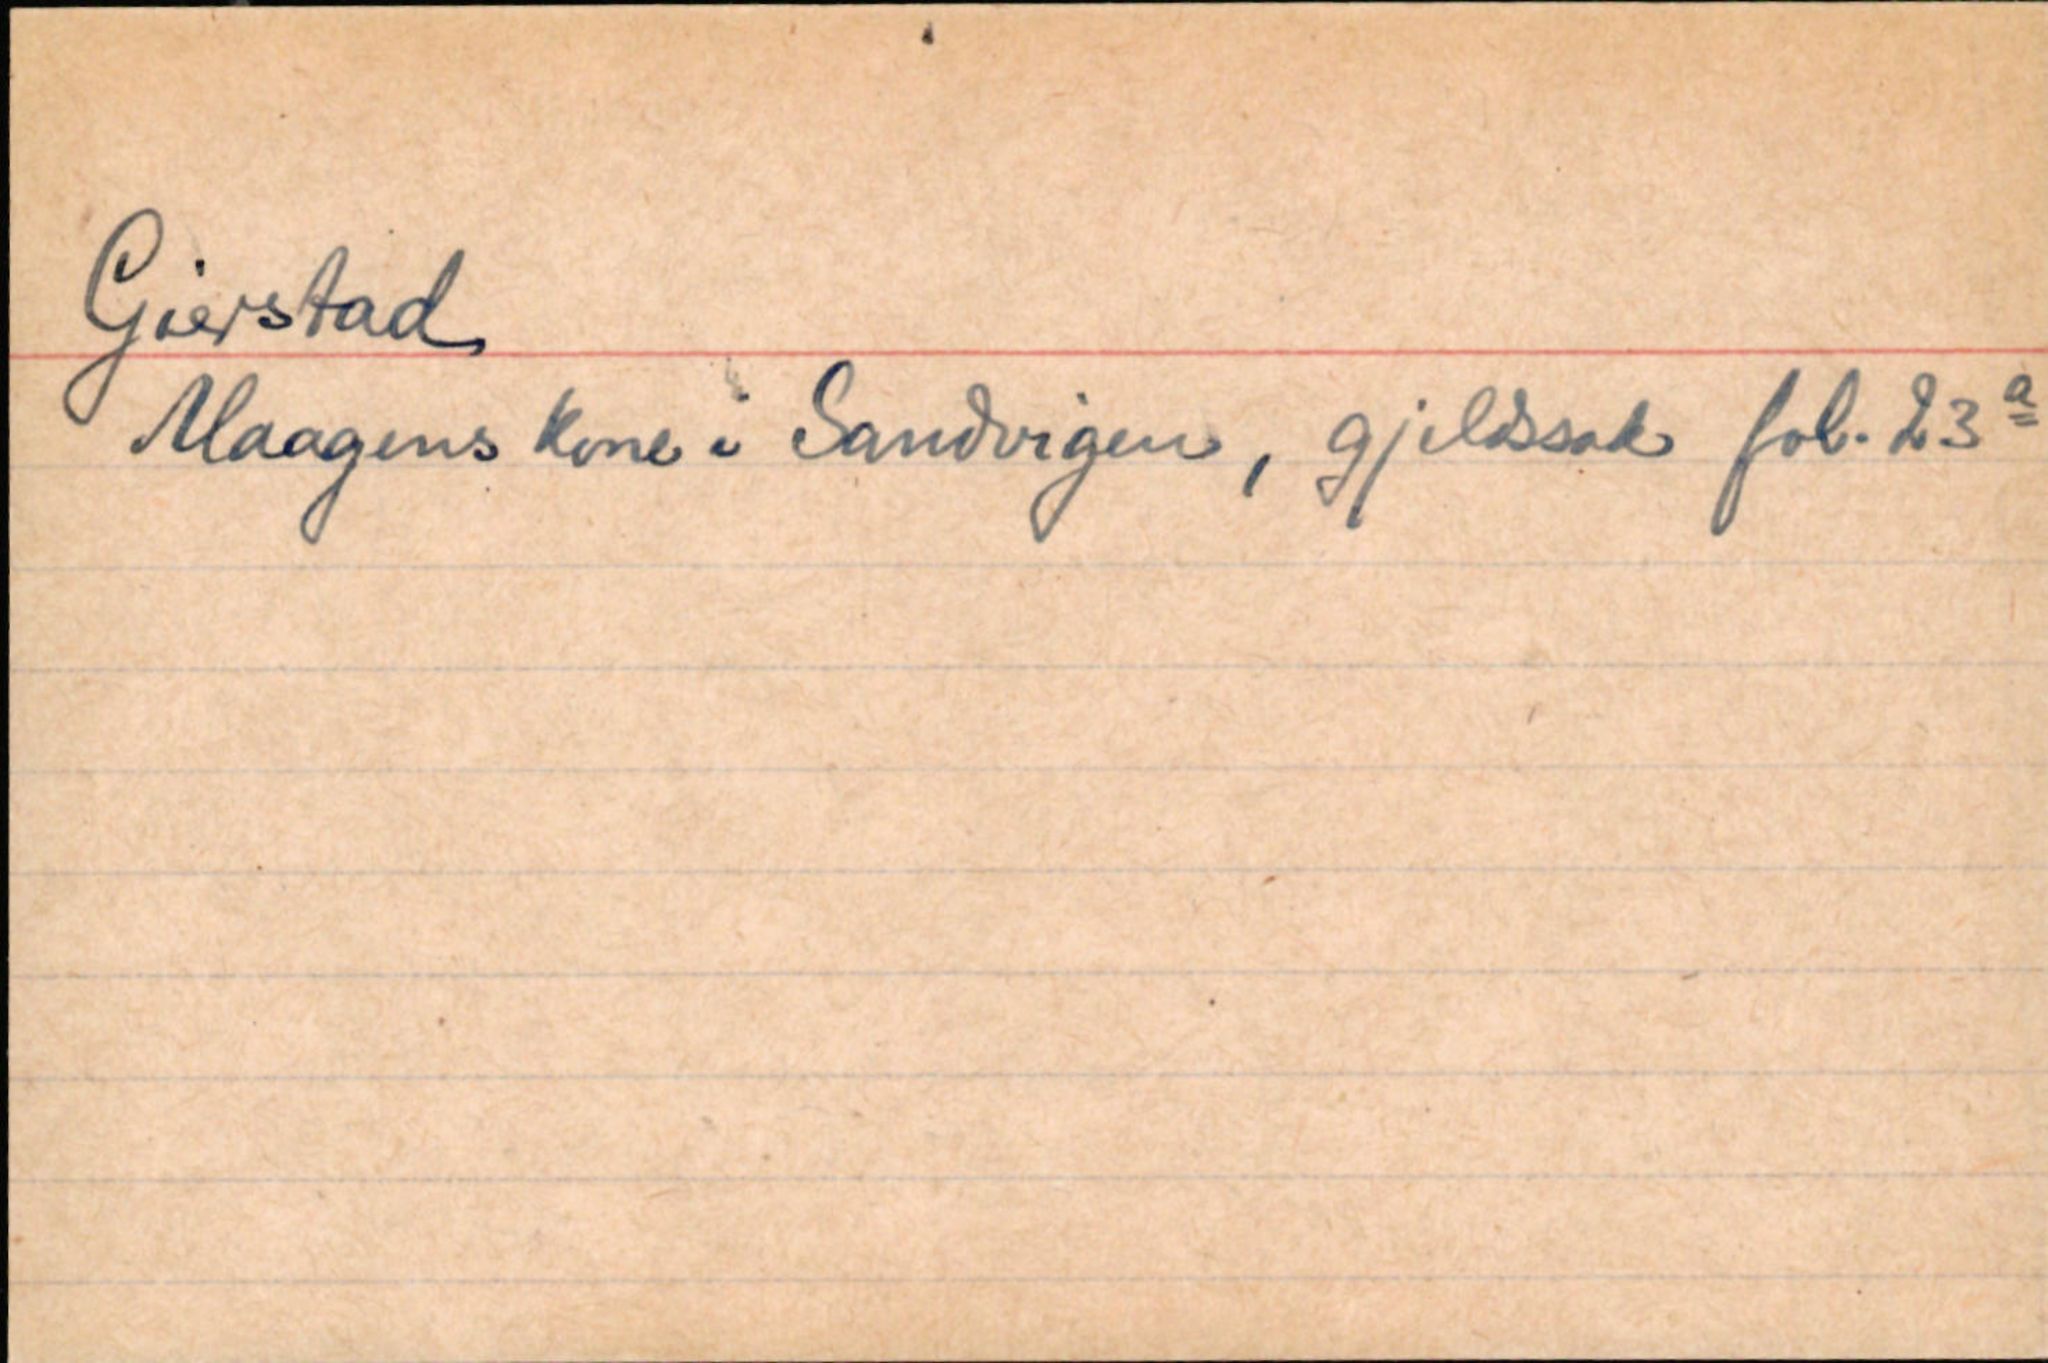 Gierstad
Maagens kone i Sandvigen, gjeldssak fol. 23 a